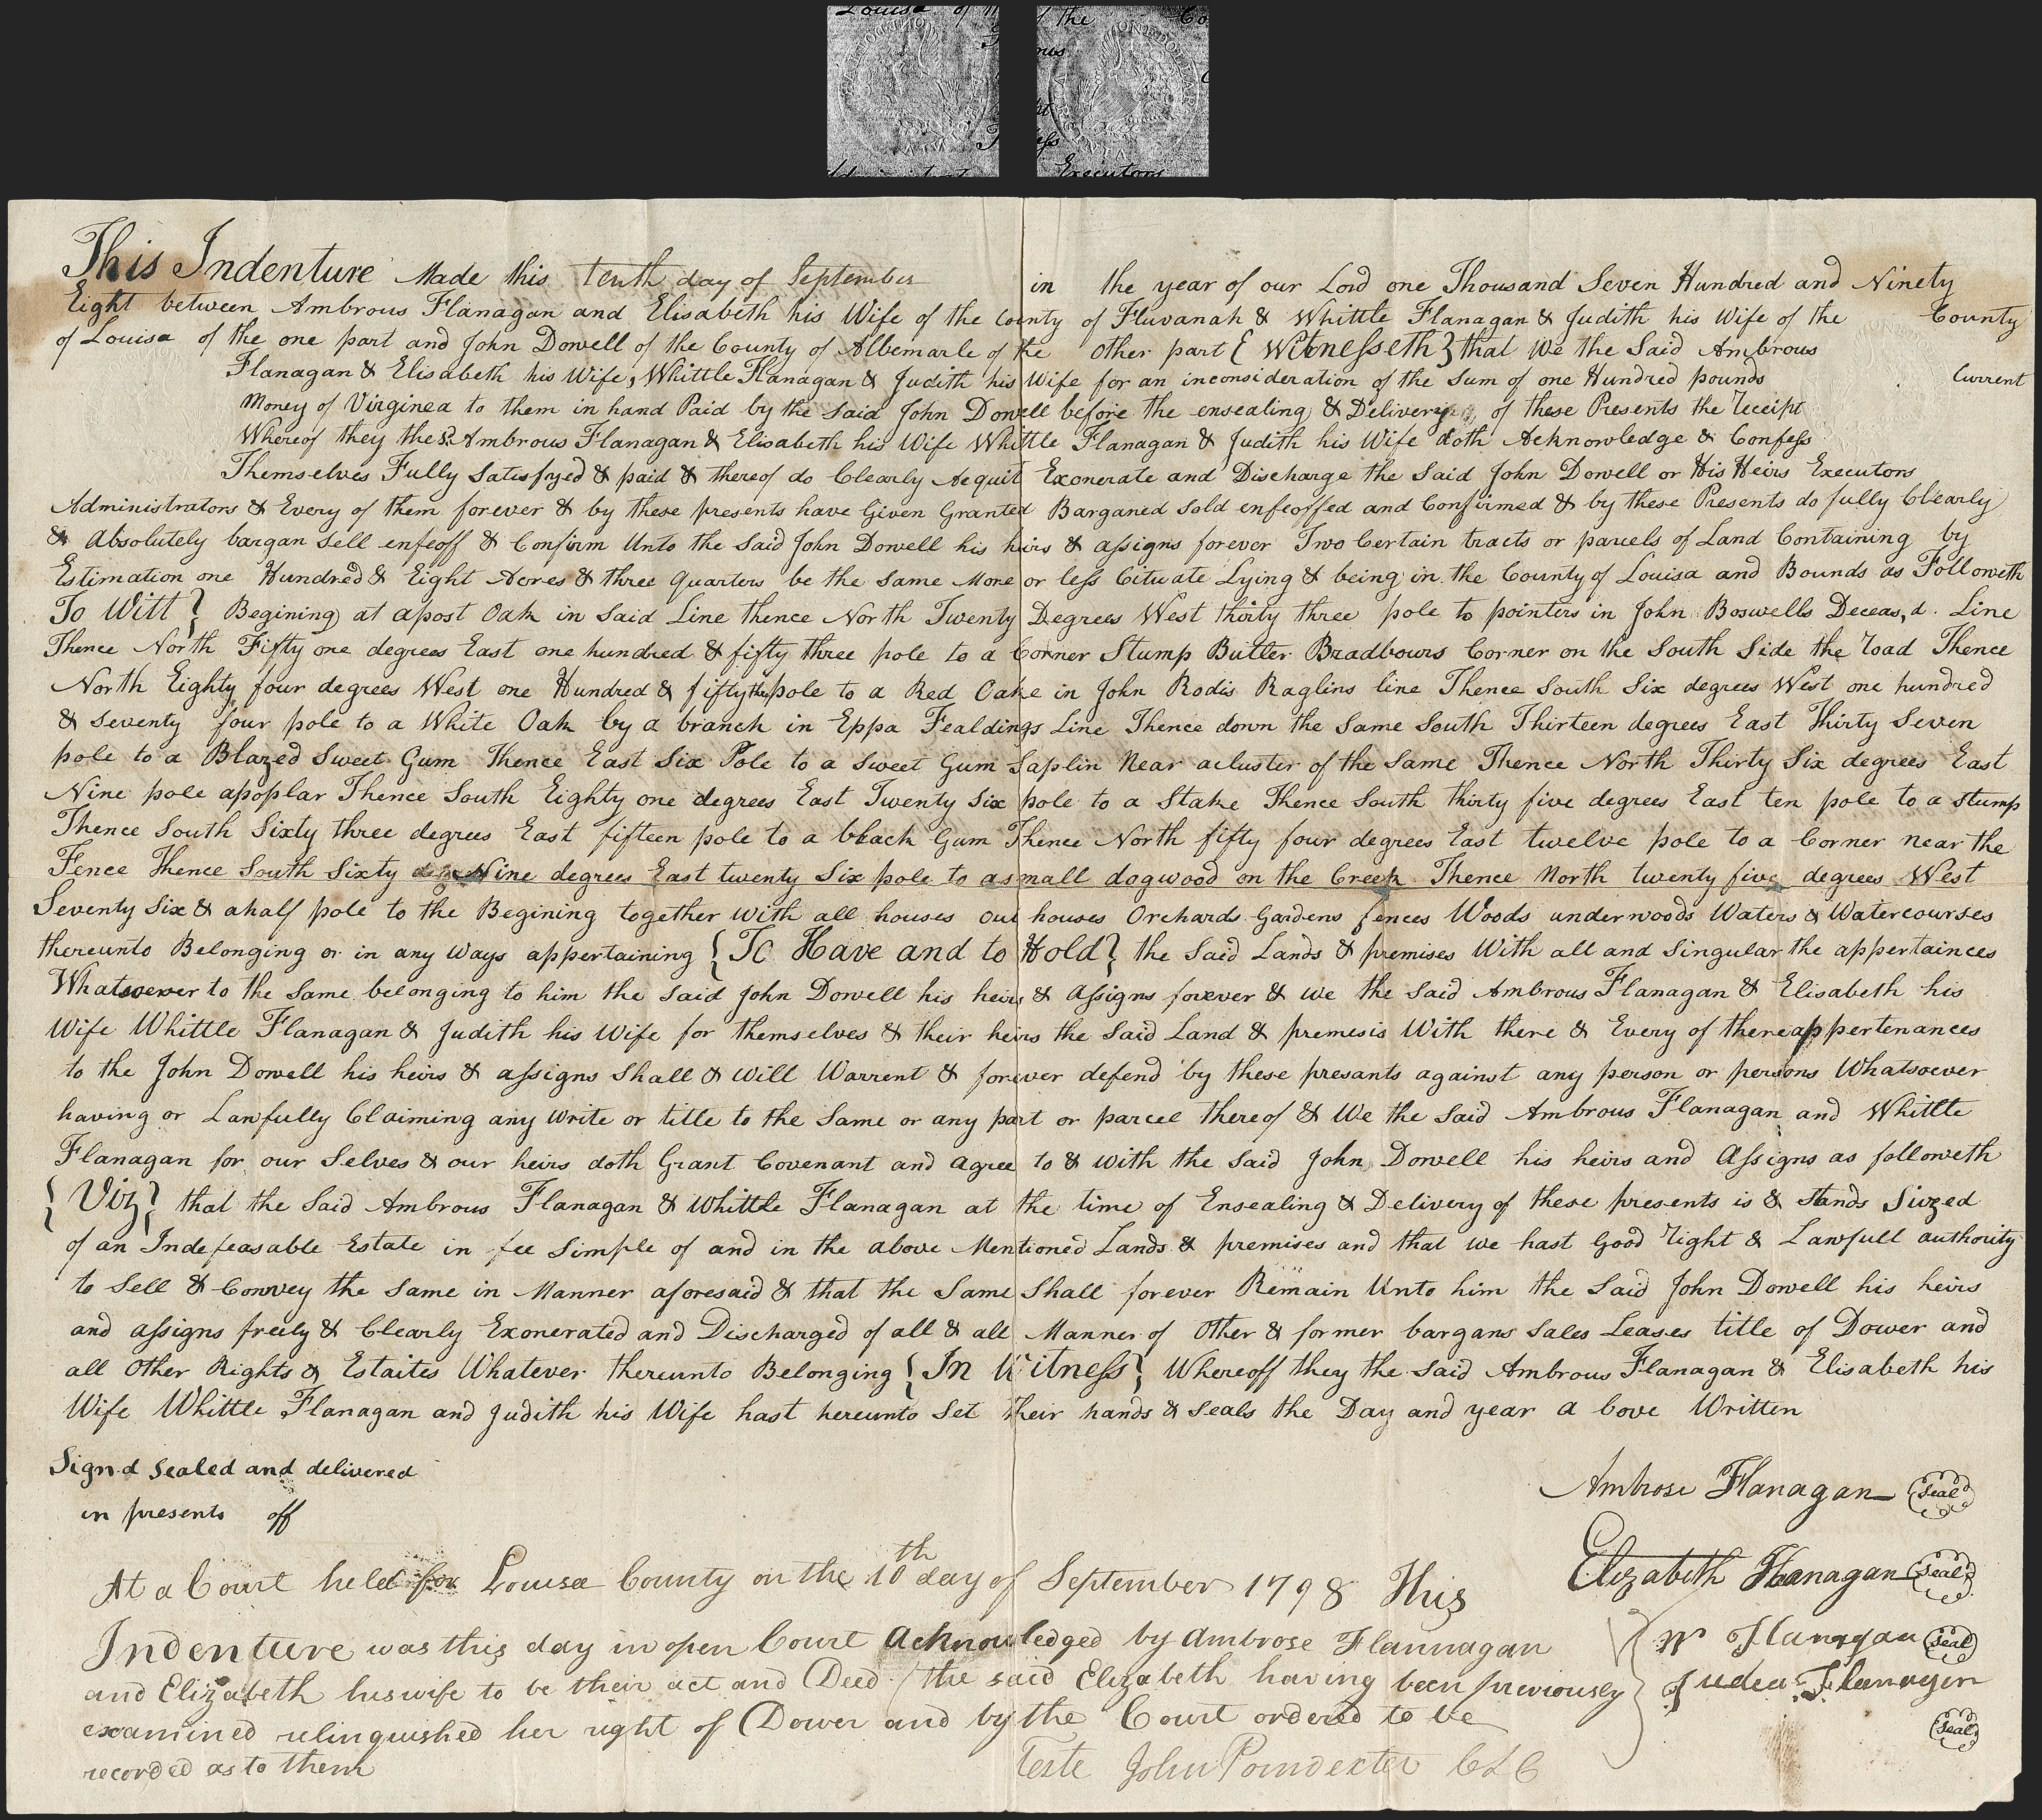 This Indenture Made this tenth day of September in the year of our Lord one Thousand Seven Hundred and Ninety
Eight between Ambrous Flanagan and Elisabeth his Wife of the County of Fluvanah & Whittle Flanagan & Judith his Wife of the County
of Louisa of the one part and John Dowell of the County of Albemarle of the other part { Witnesseth } that We the Said Ambrous
Flanagan & Elisabeth his Wife, Whittle Flanagan & Judith his Wife for an inconsideration of the Sum of one Hundred pounds Current
Money of Virginea to them in hand Paid by the Said John Dowell before the ensealing & Delivery of these Presents the receipt
Whereof they the Sd. Ambrous Flanagan & Elisabeth his Wife Whittle Flanagan & Judith his Wife doth Acknowledge & Confess
Themselves Fully Satisfyed & paid & thereof do Clearly Acquit Exonerate and Discharge the Said John Dowell or His Heirs Executors
Administrators & Every of them forever & by these presents have Given Granted Barganed Sold enfeoffed and Confirmed & by these Presents do fully Clearly
& Absolutely bargan Sell enfeoff & Confirm Unto the Said John Dowell his heirs & assigns forever Two Certain tracts or parcels of Land Containing by
Estimation one Hundred & Eight Acres & three quarters be the Same More or less Cituate Lying & being in the County of Louisa and Bounds as Followeth
To Witt } Begining at apost Oak in Said Line thence North Twenty Degrees West thirty three pole to pointers in John Boswells Deceas,d. Line
Thence North Fifty one degrees East one hundred & fifty three pole to a Corner Stump Butler Bradbours Corner on the South Side the road Thence
North Eighty four degrees West one Hundred & fifty three pole to a Red Oake in John Rodis Raglins line Thence South Six degrees West one hundred
& Seventy four pole to a White Oak by a branch in Eppa Fealdings Line Thence down the Same South Thirteen degrees East Thirty Seven
pole to a Blazed Sweet Gum Thence East Six Pole to a Sweet Gum Saplin Near acluster of the Same Thence North Thirty Six degrees East
Nine pole apoplar Thence South Eighty one degrees East Twenty Six pole to a Stake Thence South thirty five degrees East ten pole to a Stump
Thence South Sixty three degrees East fifteen pole to a black Gum Thence North fifty four degrees East twelve pole to a Corner near the
Fence Thence South Sixty Nine degrees East twenty Six pole to asmall dogwood on the Creek Thence North twenty five degrees West
Seventy Six & ahalf pole to the Begining together with all houses out houses Orchards Gardens fences Woods underwoods Waters & Watercourses
thereunto Belonging or in any ways appertaining { To Have and to Hold } the Said Lands & premises With all and Singular the appertainces
Whatsoever to the Same belonging to him the Said John Dowell his heirs & Assigns forever & we the Said Ambrous Flanagan & Elisabeth his
Wife Whittle Flanagan & Judith his Wife for themselves & their heirs the Said Land & premesis With there & Every of there appertenances
to the John Dowell his heirs & assigns Shall & will Warrent & forever defend by these presants against any person or persons Whatsoever
having or Lawfully Claiming any write or title to the Same or any part or parcel thereof & We the Said Ambrous Flanagan and Whittle
Flanagan for our Selves & our heirs doth Grant Covenant and agree to & with the Said John Dowell his heirs and Assigns as followeth
{ Viz } that the Said Ambrous Flanagan & Whittle Flanagan at the time of Ensealing & Delivery of these presents is & Stands Sivzed
of an Indefeasable Estate in fee Simple of and in the above Mentioned Lands & premises and that we hast Good right & Lawfull authority
to Sell & Convey the Same in Manner aforesaid & that the Same Shall forever Remain Unto him the Said John Dowell his heirs
and assigns freely & Clearly Exonerated and Discharged of all & all Manner of Other & former bargans Sales Leases title of Dower and
all Other Rights & Estaites Whatever thereunto Belonging { In Witness } Whereoff they the Said Ambrous Flanagan & Elisabeth his
Wife Whittle Flanagan and Judith his Wife hast hereunto Set their hands & Seals the Day and year a bove Written
Sign.d Sealed and delivered
in presents off
Ambrose Flanagan Seal
Elizabeth Flanagan Seal
W Flanagan Seal
Judea Flanagin
Seal
At a Court held for Louisa County on the 10th day of September 1798 This
Indenture was this day in open Court Acknowledged by Ambrose Flannagan
and Elizabeth his wife to be their act and Deed (the said Elizabeth having been previously
examined relinquished her right of Dower and by the Court ordered to be
recorded as to them
Teste John Poindexter CLC